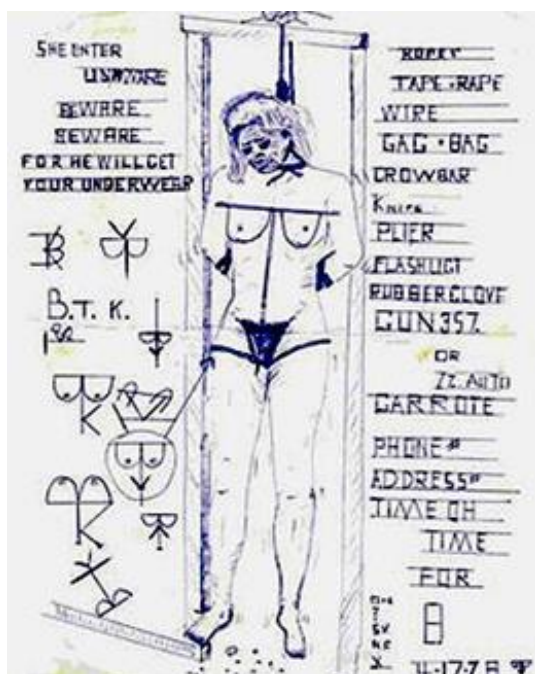 SHE ENTER
USWARE
BEWARE
BEWARE
FOR HE WILL GET
YOUR UNDERWEAR
B.T.K.
TAPE · RAPE
WIRE
GAG · BAG
CROWBAR
KNIFE
PLIER
FLASHLIGT
RUBBER GLOVE
GUN 357
OR
22 AUTO
GARROTE
PHONE #
ADDRESS #
TIME OH
TIME
FOR